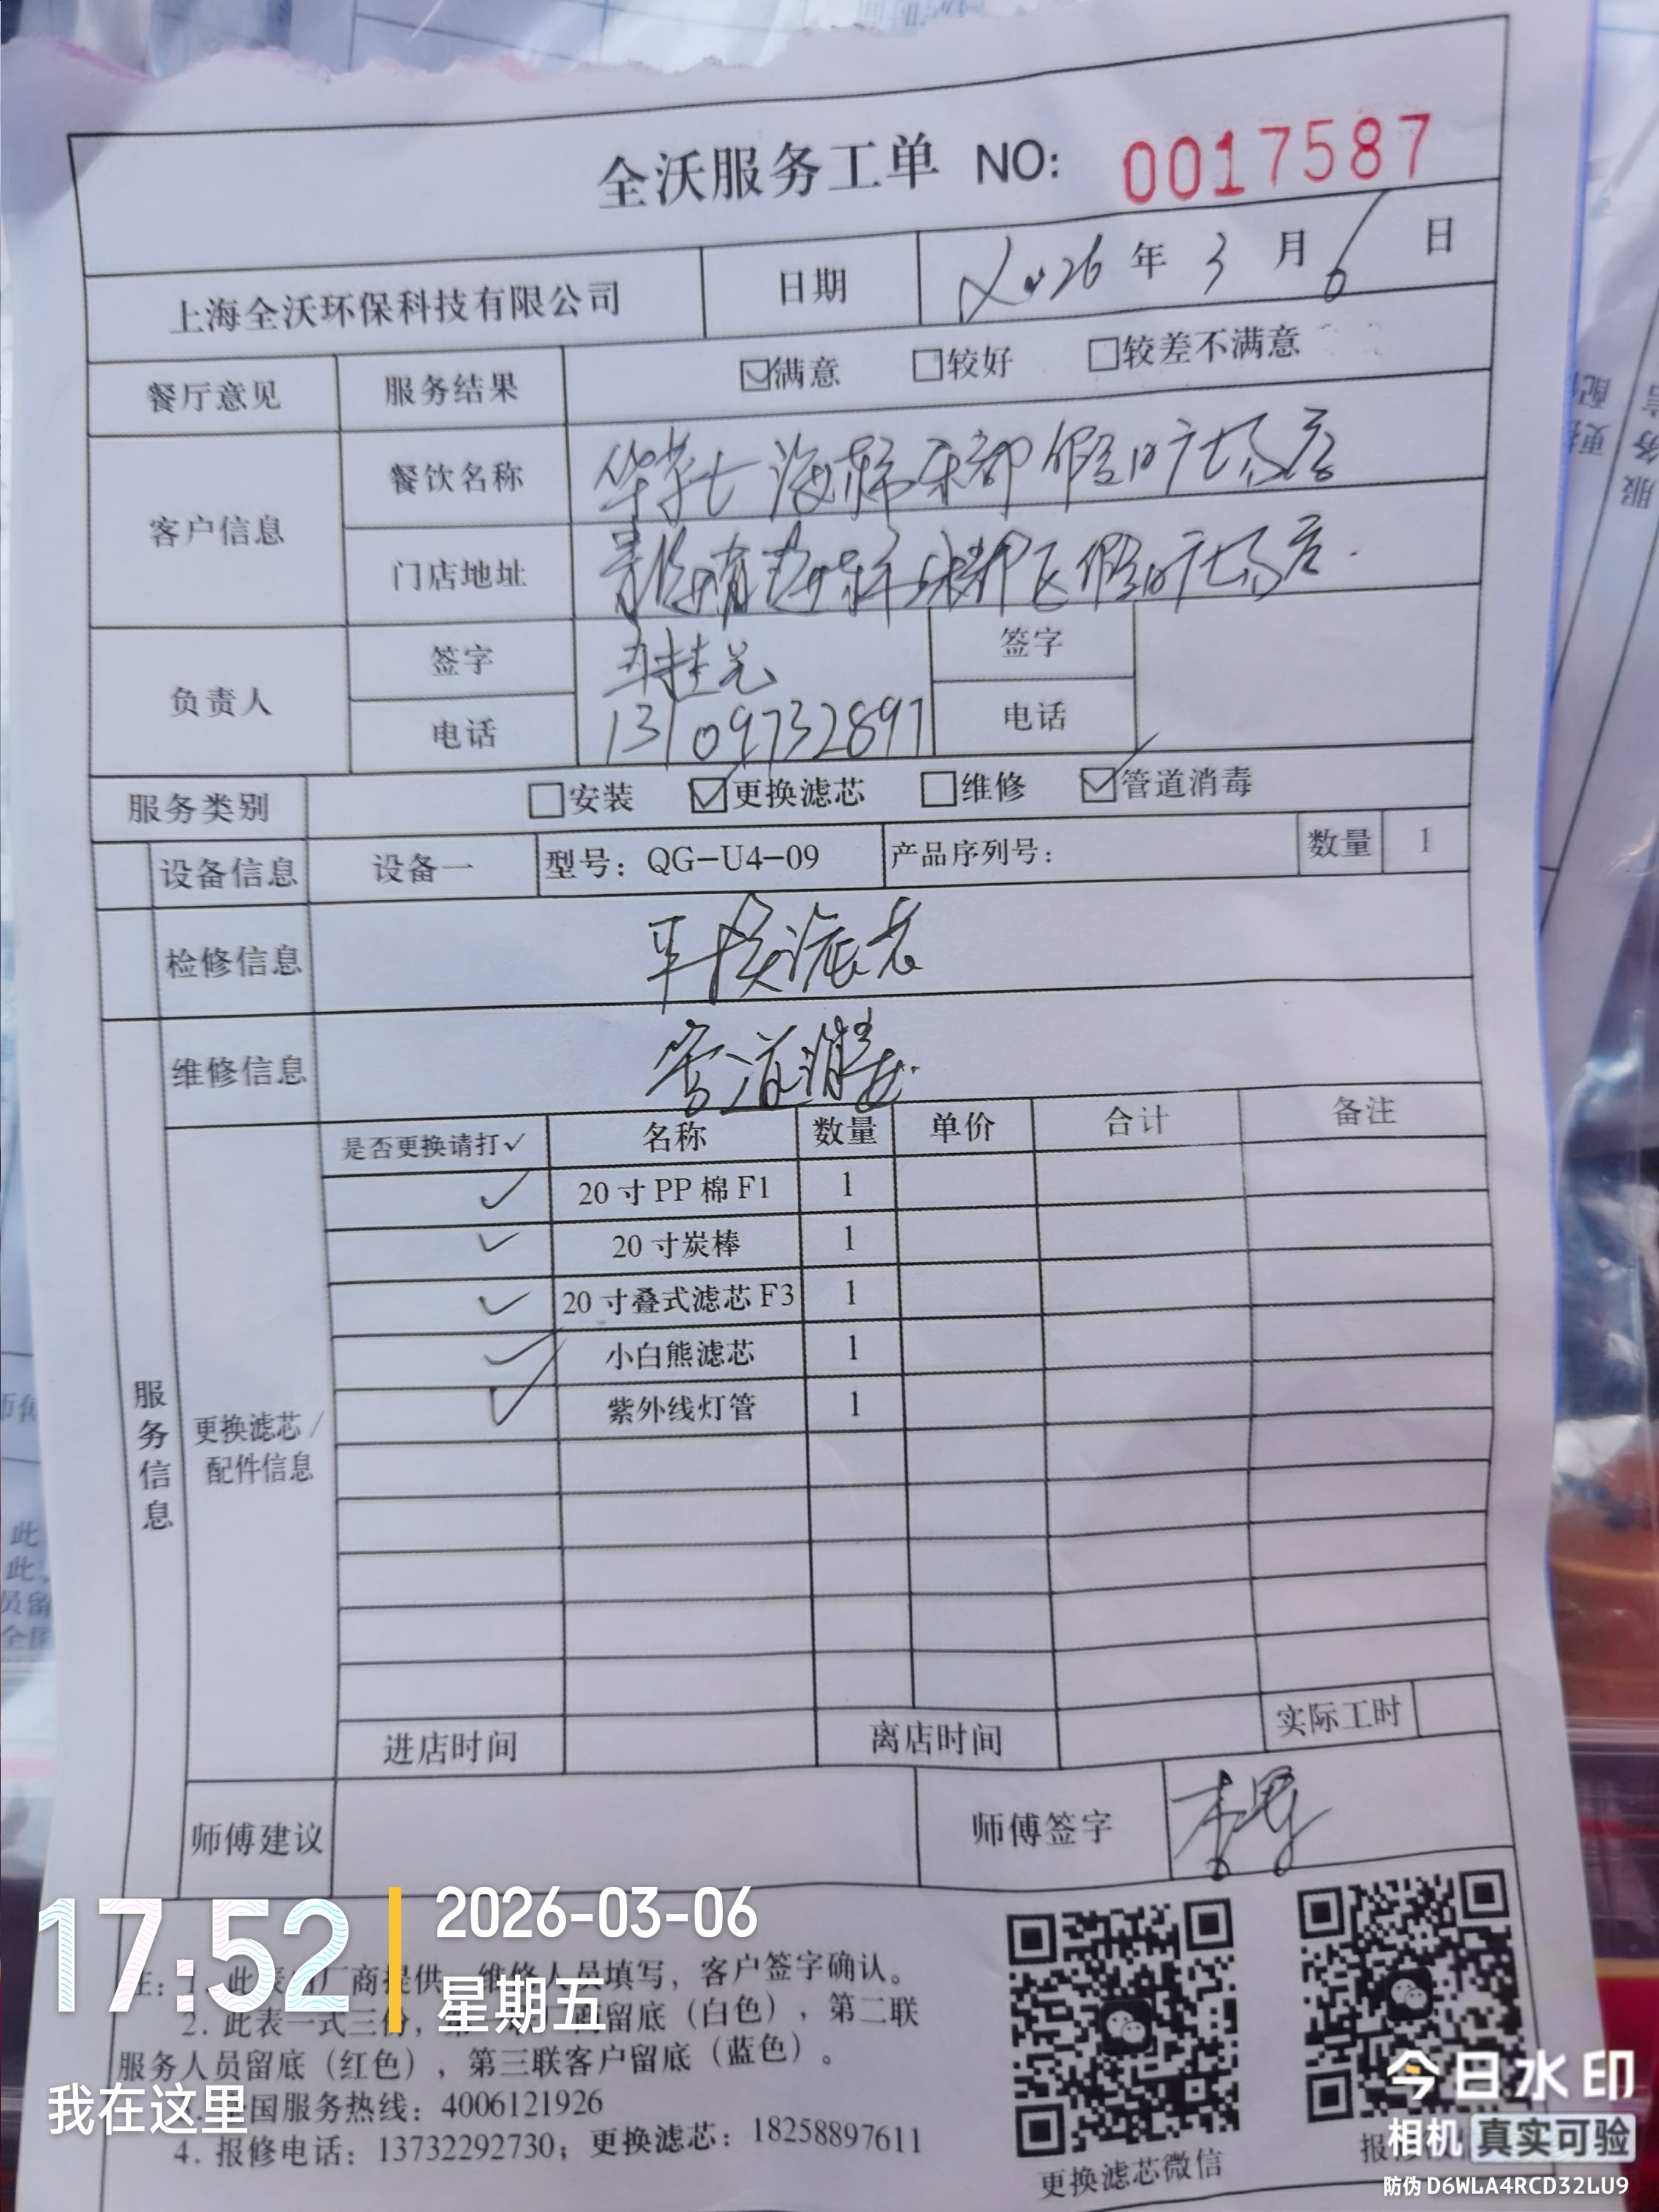 全沃服务工单 NO: 0017587
上海全沃环保科技有限公司 日期 2026 年 3 月 6 日
餐厅意见 服务结果 ☑满意 □较好 □较差不满意
客户信息 餐饮名称 华莱士海东乐都假日广场店
门店地址 青海省海东市乐都区假日广场店.
负责人 签字 签字
电话 13109732897 电话
服务类别 □安装 ☑更换滤芯 □维修 ☑管道消毒
设备信息 设备一 型号: QG-U4-09 产品序列号: 数量 1
检修信息 更换滤芯
维修信息 管道消毒.
服务信息
更换滤芯/配件信息
是否更换请打✓ 名称 数量 单价 合计 备注
✓ 20寸PP棉F1 1
✓ 20寸炭棒 1
✓ 20寸叠式滤芯F3 1
✓ 小白熊滤芯 1
✓ 紫外线灯管 1
进店时间 离店时间 实际工时
师傅建议 师傅签字
17:52
2026-03-06
星期五
我在这里
注: 1. 此表 厂商提供 维修人员填写, 客户签字确认。
2. 此表一式三份, 留底 (白色), 第二联
服务人员留底 (红色), 第三联客户留底 (蓝色)。
国服务热线: 4006121926
4. 报修电话: 13732292730; 更换滤芯: 18258897611
更换滤芯微信
报
今日水印
相机 真实可验
防伪 D6WLA4RCD32LU9